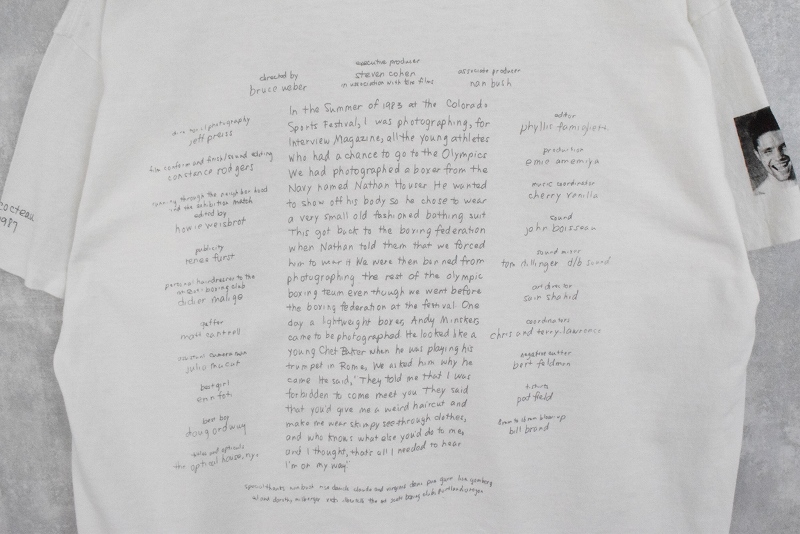 executive producer
steven cohen
in association with
films
directed by
bruce weber
associate producer
nan bush
photography
jeff preiss
film conform and finish/sound editing
constance rodgers
running through the neighborhood
and the exhibition match
edited by
howie weisbrot
publicity
renee furst
personal hairdresser to the
boxing club
didier malige
gaffer
matt cantrell
camera man
julio macat
bestgirl
best boy
doug ordway
titles and opticals
the optical house, n.y.
In the Summer of 1983 at the Colorado
Sports Festival, I was photographing, for
Interview Magazine, all the young athletes
who had a chance to go to the Olympics
We had photographed a boxer from the
Navy named Nathan Houser He wanted
to show off his body so he chose to wear
a very small old fashioned bathing suit
This got back to the boxing federation
when Nathan told them that we forced
him to wear it We were then banned from
photographing the rest of the olympic
boxing team even though we went before
the boxing federation at the festival. One
day a lightweight boxer, Andy Minsker,
came to be photographed. He looked like a
young Chet Baker when he was playing his
trumpet in Rome, We asked him why he
came He said, 'They told me that I was
forbidden to come meet you They said
that you'd give me a weird haircut and
make me wear skimpy see-through clothes,
and who knows what else you'd do to me,
and I thought, that's all I needed to hear
I'm on my way'
editor
phyllis famiglietti
production
emie amemiya
music coordinator
cherry vanilla
sound
john boisseau
sound mixer
tom dillinger d/b sound
art director
sam shahid
coordinators
chris and terry lawrence
negative cutter
bert feldman
t. shirts
pat field
blow-up
bill brand
special thanks
cocteau
1987